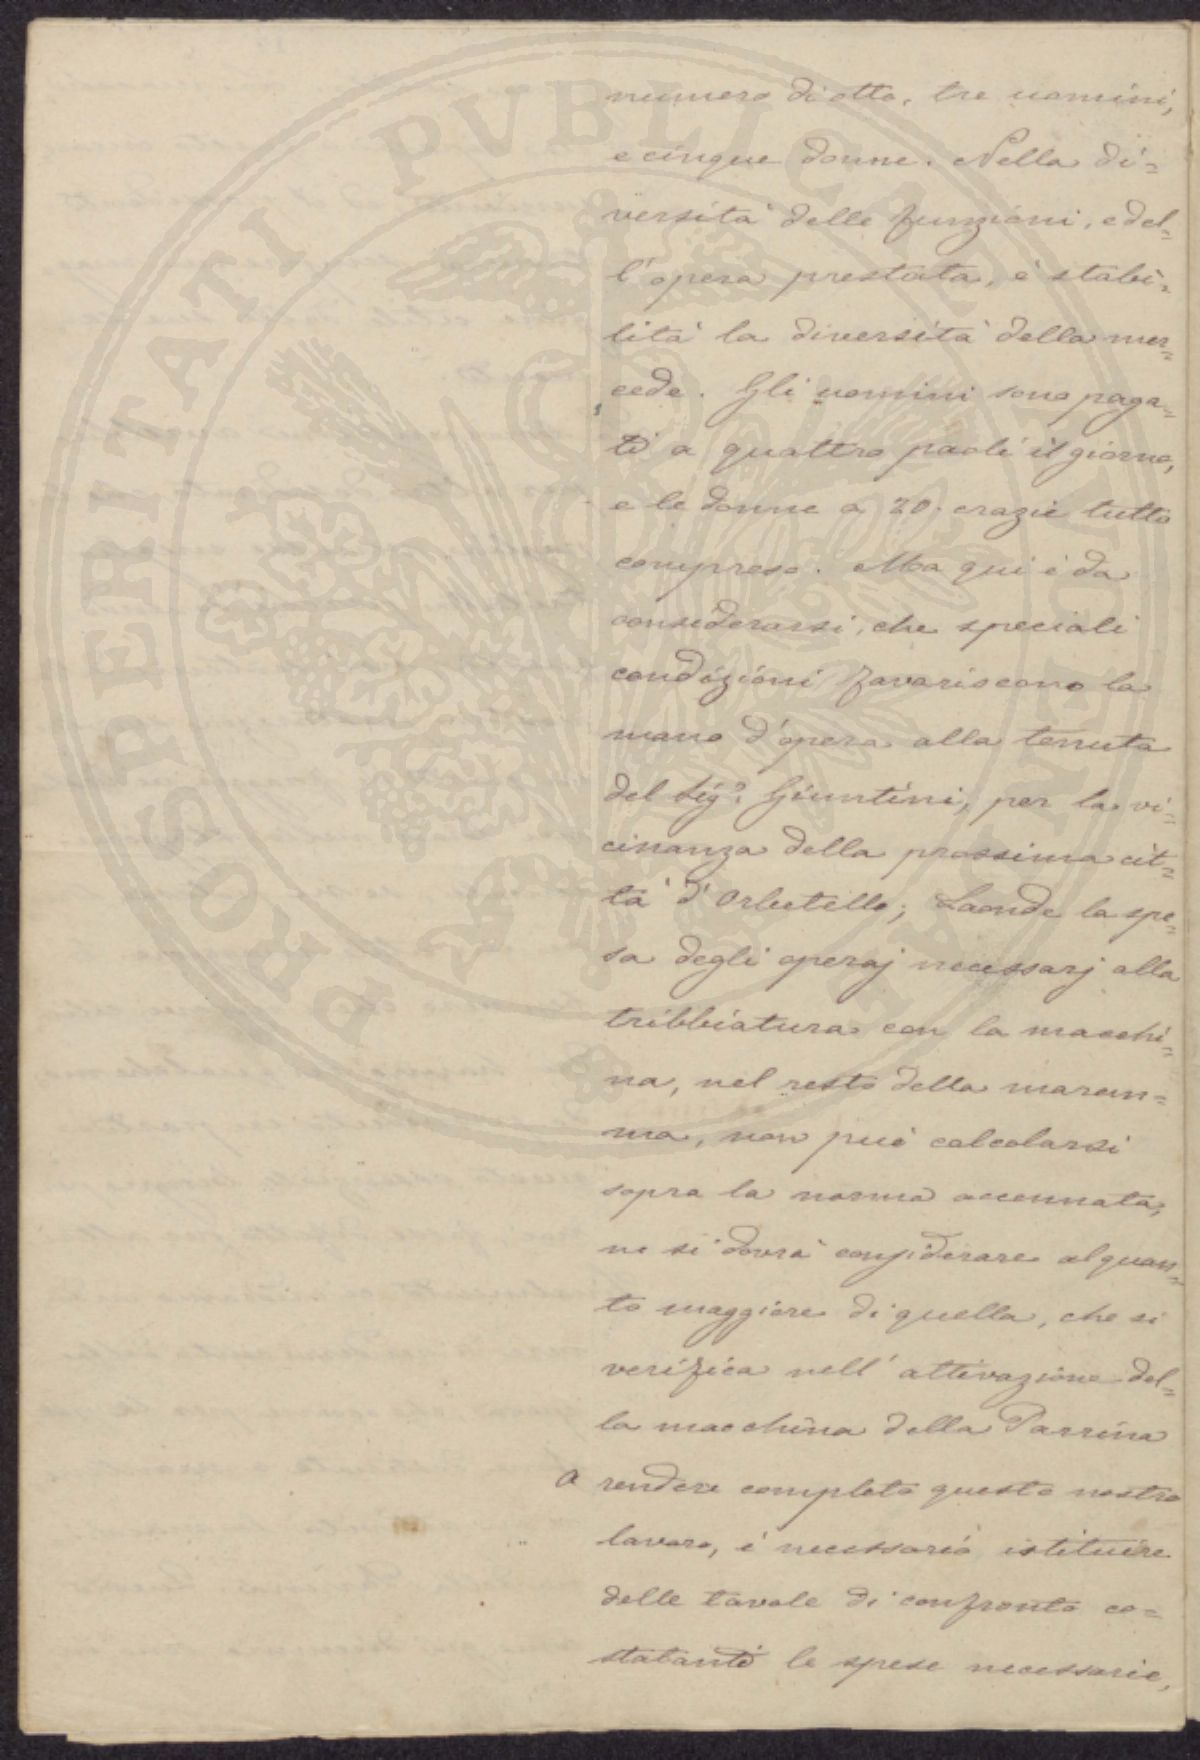 numero di otto, tre uomini,
e cinque donne. Nella di=
versità delle funzioni, e del=
l'opera prestata, è stabi=
lita la diversità della mer=
cede. Gli uomini sono paga=
ti a quattro paoli il giorno,
e le donne a 20. crazie tutto
compreso. Ma qui è da
considerarsi, che speciali
condizioni favoriscono la
mano d'opera alla tenuta
del Sig.r Giuntini, per la vi=
cinanza della prossima cit=
tà d'Orbetello; Laonde la spe=
sa degli operaj necessarj alla
tribbiatura con la macchi=
na, nel resto della marem=
ma, non può calcolarsi
sopra la norma accennata,
ne si dovrà considerare alquan=
to maggiore di quella, che si
verifica nell'attivazione del=
la macchina della Parrina
A rendere completo questo nostro
lavoro, è necessario istituire
delle tavole di confronto co=
statanti le spese necessarie,
PROSPERITATI PVBLICAE AVGENDAE